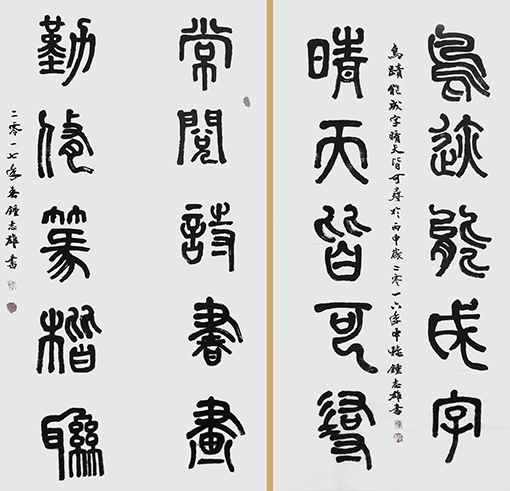 鳥迹能成字
鳥蹟能成字晴天皆可尋於丙申歲二零一六年中鍾志雄書
晴天皆可尋
常閱詩書畫
勤修篆楷聯
二零一七年春鍾志雄書